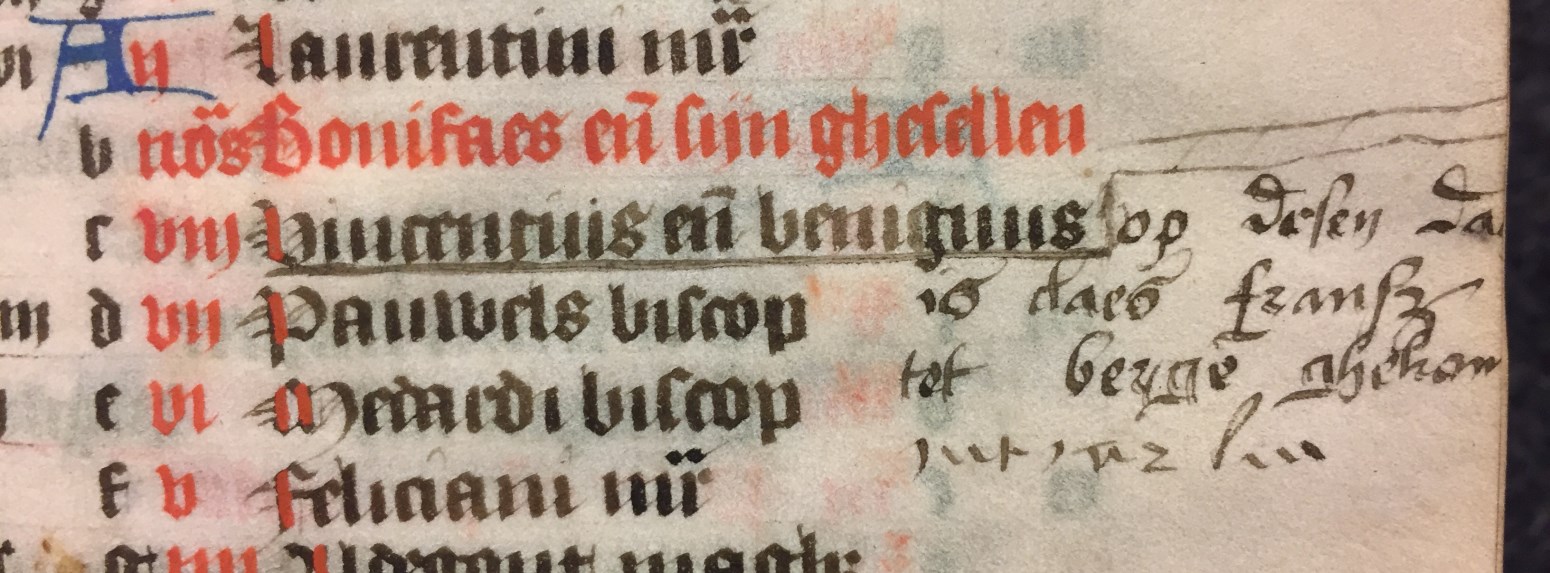 A ij Laurentiui mr̄
b nōs Bonifaes eñ sijn ghesellen
c viij Vincentuis eñ benignus op desen da
d vij Pauwels biscop is claes fransz
e vi Medardi biscop tot bergē ghekom
f v Feliciani mr̄ int jaer lm
g iiij